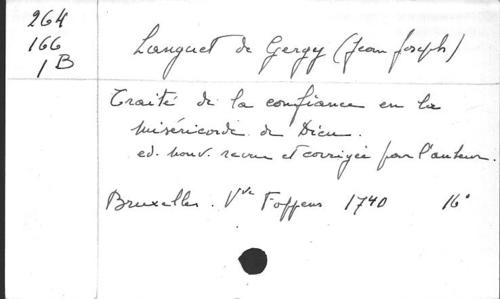 264
166
1 B
Languet de Gergy (Jean Joseph)
Traité de la confiance en la
miséricorde de Dieu.
ed. nouv. revue et corrigée par l'auteur.
Bruxelles. Vve Foppens 1740 16°